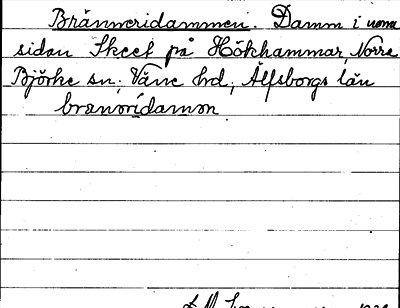 Bränneridammen. Damm i norra
sidan Skeet på Hökhammar, Norra
Björke sn; Väne hd; Älfsborgs län
brænəridamən